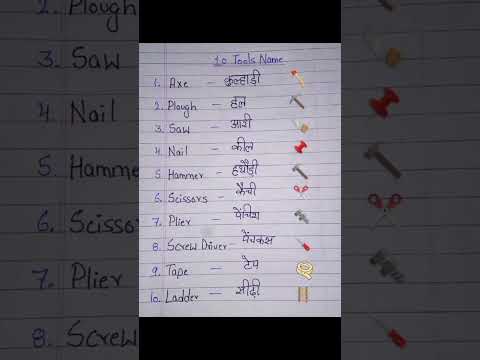 10 Tools Name
1. Axe – कुल्हाड़ी
2. Plough – हल
3. Saw – आरी
4. Nail – कील
5. Hammer – हथौड़ी
6. Scissors – कैंची
7. Plier – पेंचिश
8. Screw Driver – पेंचकस
9. Tape – टेप
10. Ladder – सीढ़ी
3. Saw
4. Nail
5. Hammer
6. Scissors
7. Plier
8. Screw